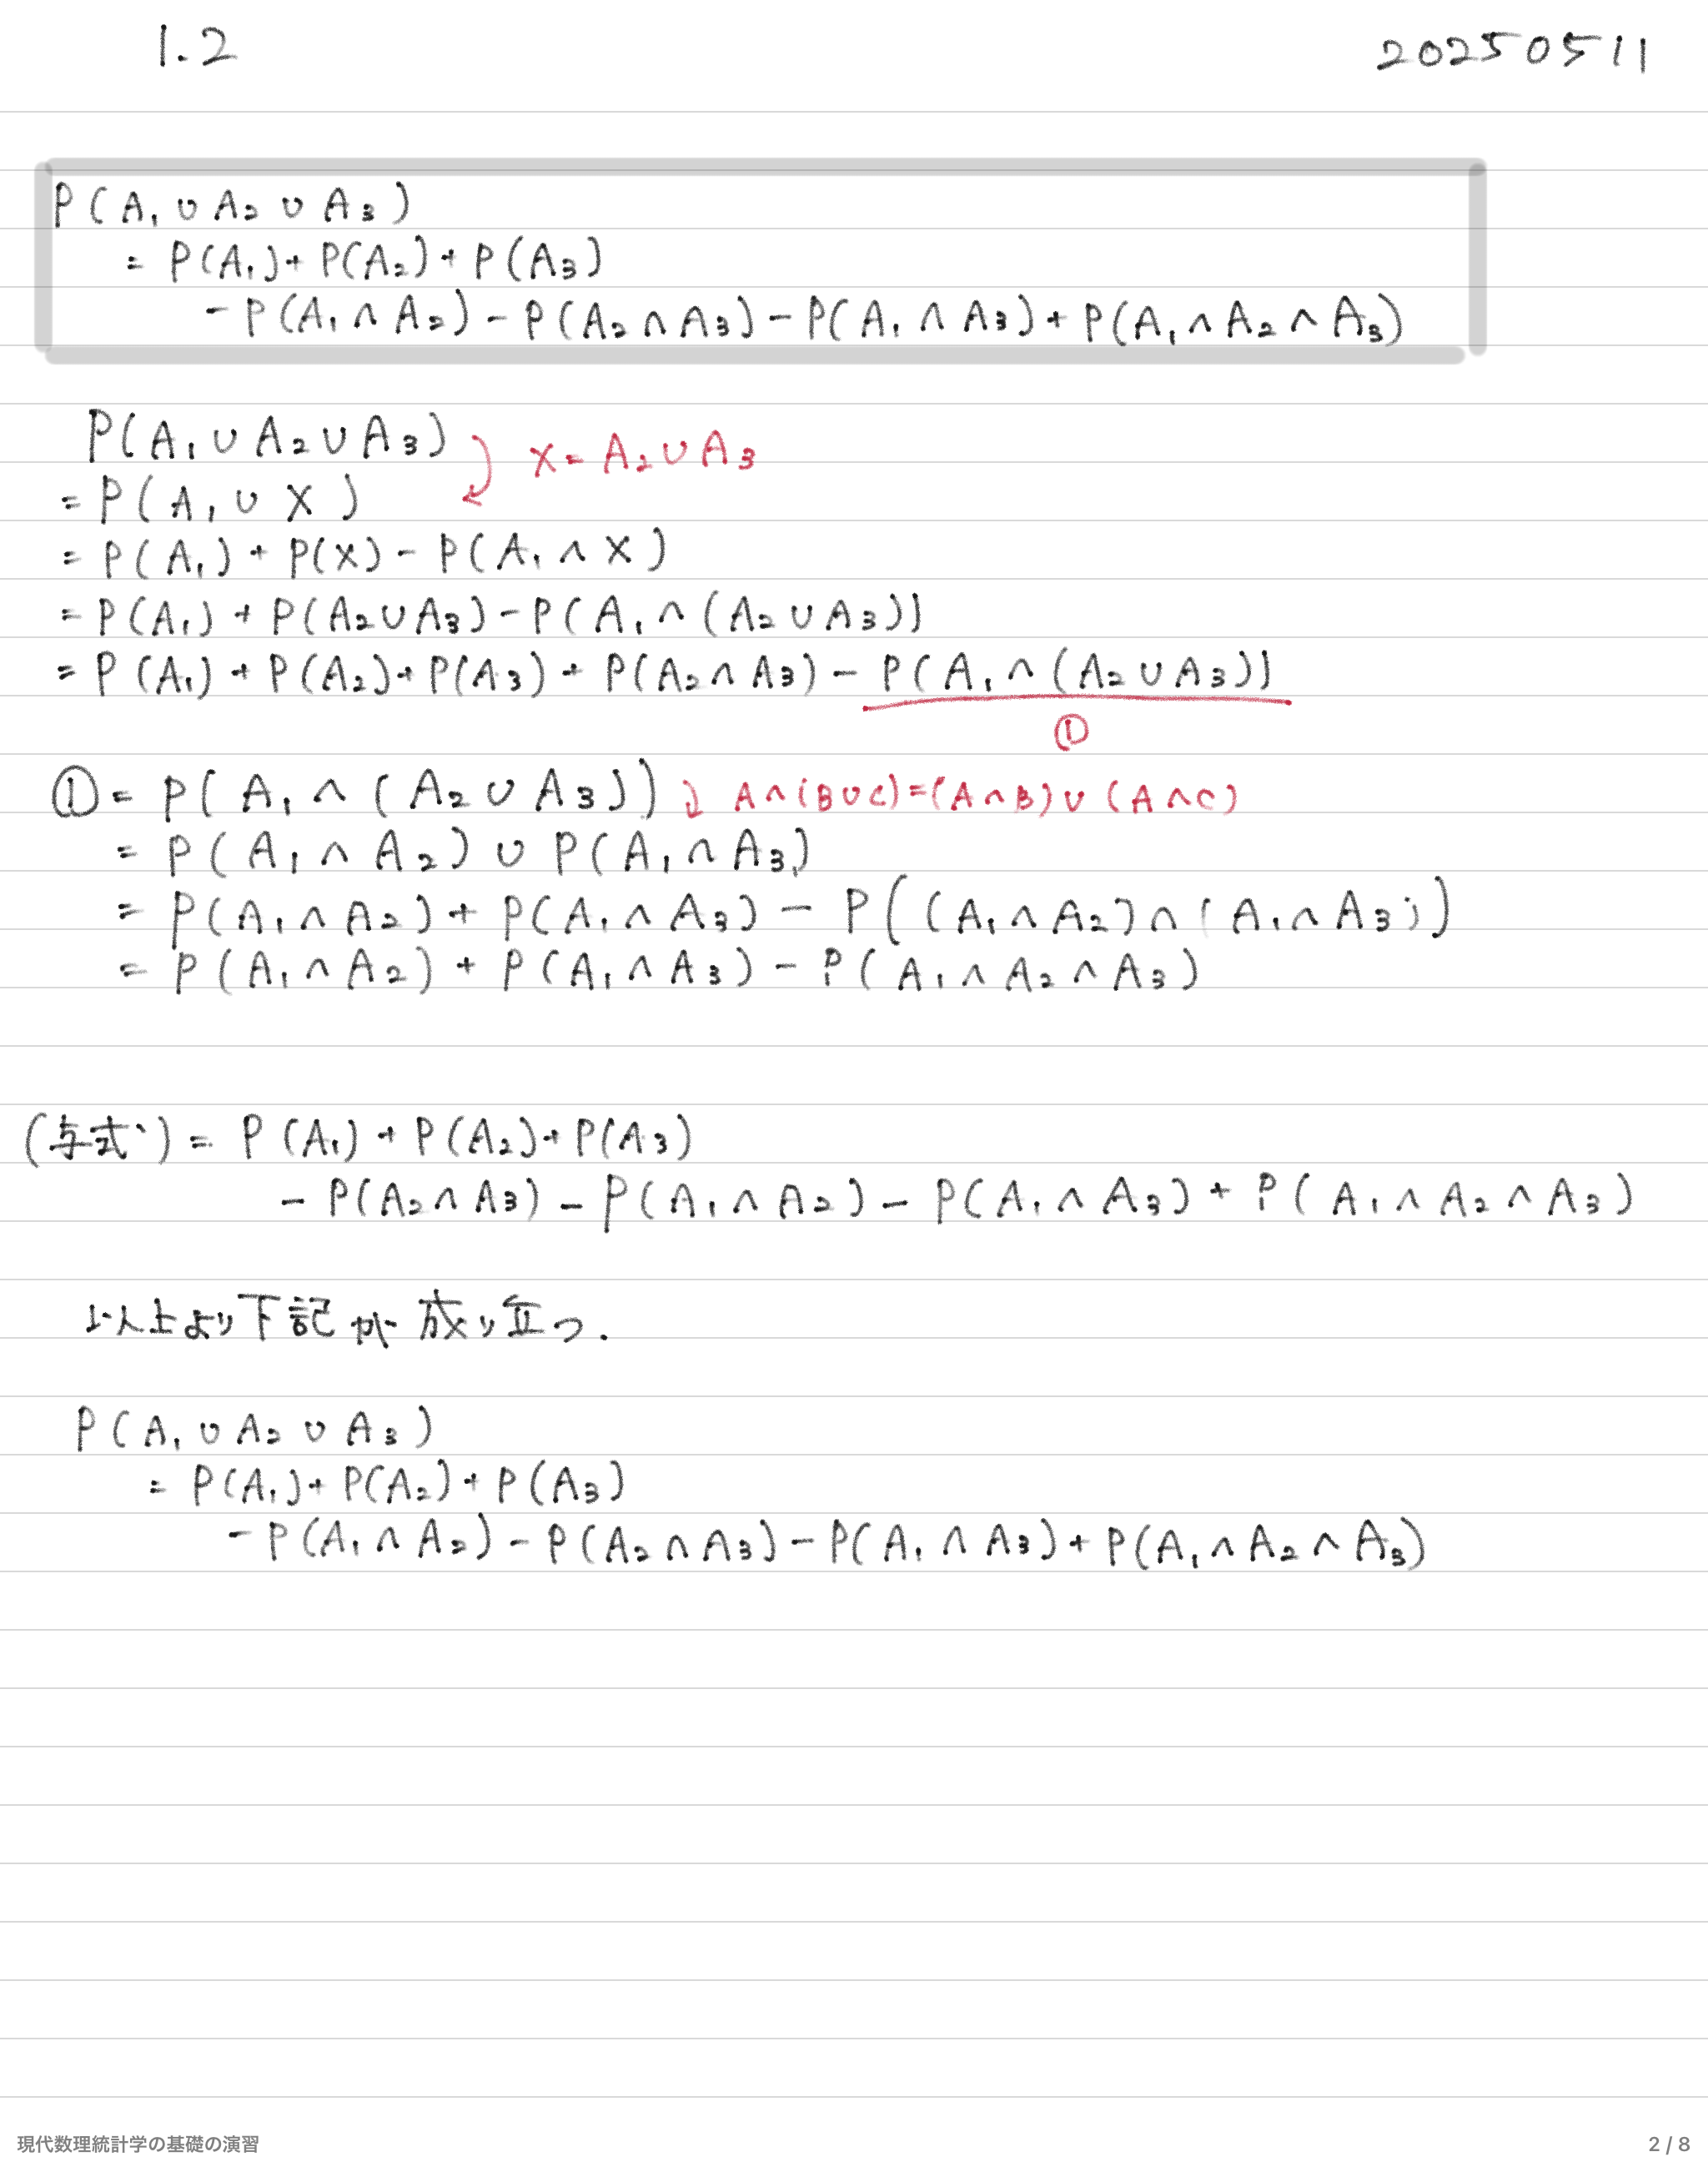 1.2 20250511
P(A₁ ∪ A₂ ∪ A₃)
= P(A₁) + P(A₂) + P(A₃)
- P(A₁ ∩ A₂) - P(A₂ ∩ A₃) - P(A₁ ∩ A₃) + P(A₁ ∩ A₂ ∩ A₃)
P(A₁ ∪ A₂ ∪ A₃) X = A₂ ∪ A₃
= P(A₁ ∪ X)
= P(A₁) + P(X) - P(A₁ ∩ X)
= P(A₁) + P(A₂ ∪ A₃) - P(A₁ ∩ (A₂ ∪ A₃))
= P(A₁) + P(A₂) + P(A₃) + P(A₂ ∩ A₃) - P(A₁ ∩ (A₂ ∪ A₃))
①
① = P(A₁ ∩ (A₂ ∪ A₃)) A ∩ (B ∪ C) = (A ∩ B) ∪ (A ∩ C)
= P(A₁ ∩ A₂) ∪ P(A₁ ∩ A₃)
= P(A₁ ∩ A₂) + P(A₁ ∩ A₃) - P((A₁ ∩ A₂) ∩ (A₁ ∩ A₃))
= P(A₁ ∩ A₂) + P(A₁ ∩ A₃) - P(A₁ ∩ A₂ ∩ A₃)
(与式) = P(A₁) + P(A₂) + P(A₃)
- P(A₂ ∩ A₃) - P(A₁ ∩ A₂) - P(A₁ ∩ A₃) + P(A₁ ∩ A₂ ∩ A₃)
以上より下記が成り立つ.
P(A₁ ∪ A₂ ∪ A₃)
= P(A₁) + P(A₂) + P(A₃)
- P(A₁ ∩ A₂) - P(A₂ ∩ A₃) - P(A₁ ∩ A₃) + P(A₁ ∩ A₂ ∩ A₃)
現代数理統計学の基礎の演習 2 / 8